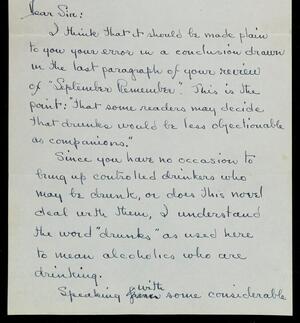 Dear Sir:
I think that it should be made plain
to you your error in a conclusion drawn
in the last paragraph of your review
of "September Remember". This is the
point: "That some readers may decide
that drunks would be less objectionable
as companions."
Since you have no occasion to
bring up controlled drinkers who
may be drunk, or does this novel
deal with them, I understand
the word "drunks" as used here
to mean alcoholics who are
drinking.
Speaking with some considerable